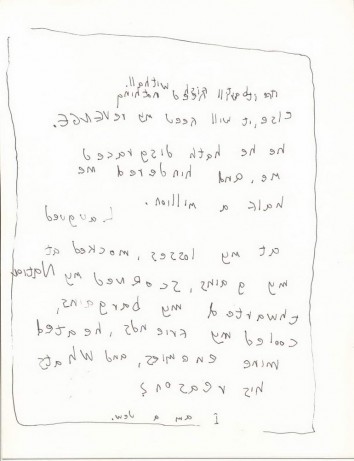 withall.
nothing
else, it will feed my reVENGE.
he he hath disgraced
me, and hindered me
half a million.
Laugued
at my losses, mocked at
my gains, scorned my Nation
thwarted my bargains,
cooled my Friends, heated
mine enemies, and Whats
his reason?
I am a Jew.